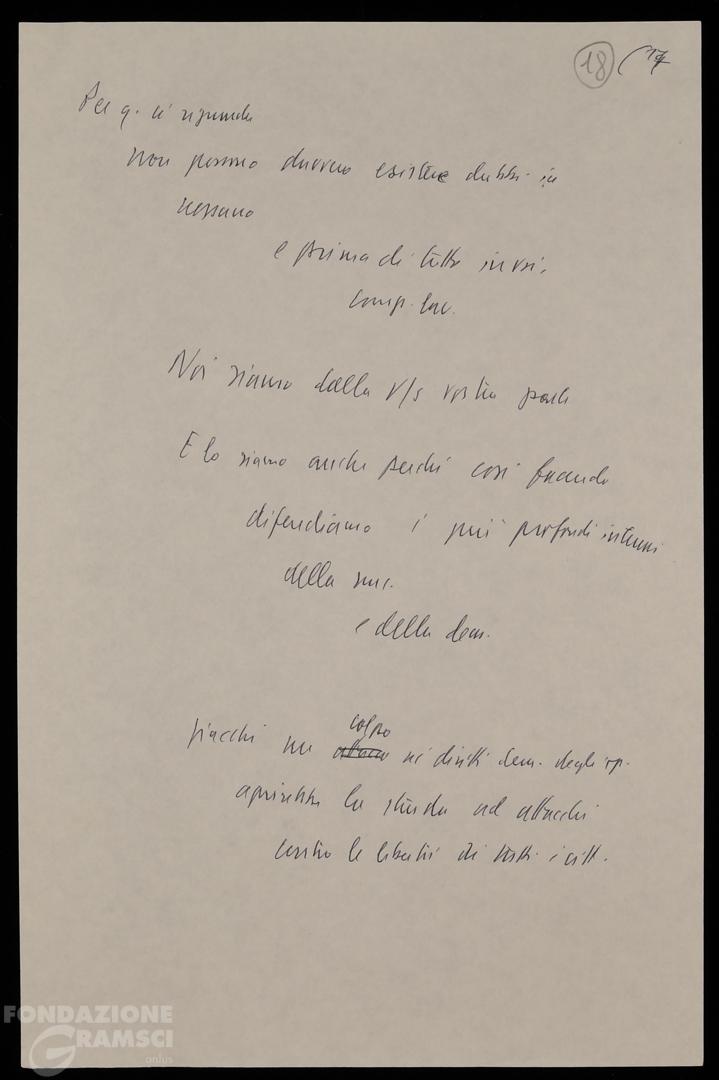 18 (17
Per q. ci riguarda
non possono davvero esistere dubbi in
nessuno
e prima di tutto in voi,
comp. lav.
Noi siamo dalla v/s vostra parte
E lo siamo anche perché così facendo
difendiamo i più profondi interessi
della
e della dem.
giacchi un colpo ai diritti dem. degli op.
aprirebbe la strada ad attacchi
contro le libertà di tutti i citt.
FONDAZIONE
GRAMSCI
onlus